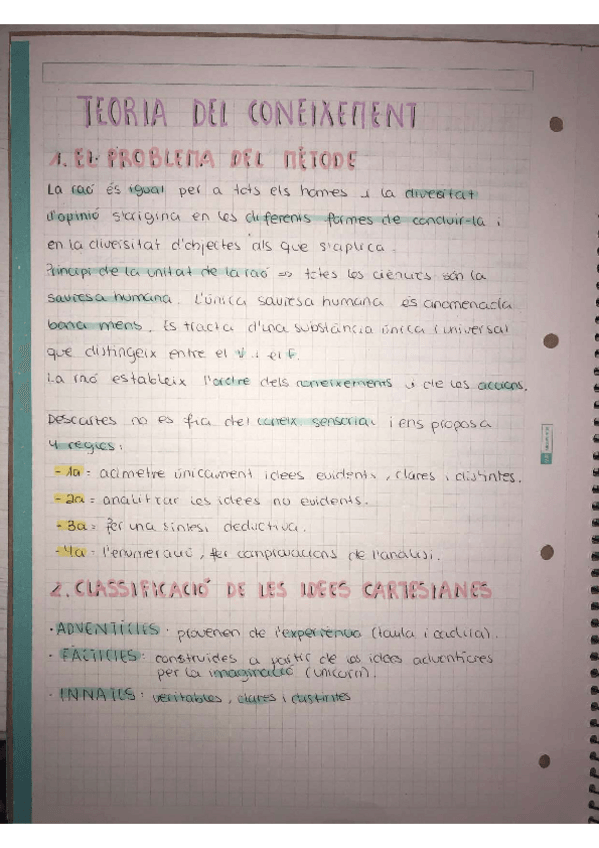 TEORIA DEL CONEIXEMENT
1. EL PROBLEMA DEL MÈTODE
La raó és igual per a tots els homes i la diversitat
d'opinió s'origina en les diferents formes de conduir-la i
en la diversitat d'objectes als que s'aplica.
Principi de la unitat de la raó => totes les ciències són la
saviesa humana. L'única saviesa humana es anomenada
bona mens. Es tracta d'una substància única i universal
que distingeix entre el V i el F.
La raó estableix l'ordre dels coneixements i de les accions.
Descartes no es fia del coneix sensorial i ens proposa
4 regles:
- 1a = acimetre únicament idees evidents, clares i distintes.
- 2a = analitzar les idees no evidents.
- 3a = fer una síntesi deductiva.
- 4a = l'enumeració, fer comprovacions de l'anàlisi.
2. CLASSIFICACIÓ DE LES IDEES CARTESIANES
· ADVENTÍCIES: provenen de l'experiència (taula i cadira).
· FACTÍCIES: construïdes a partir de les idees adventícies
per la imaginació (unicorn).
· INNATES: veritables, clares i distintes